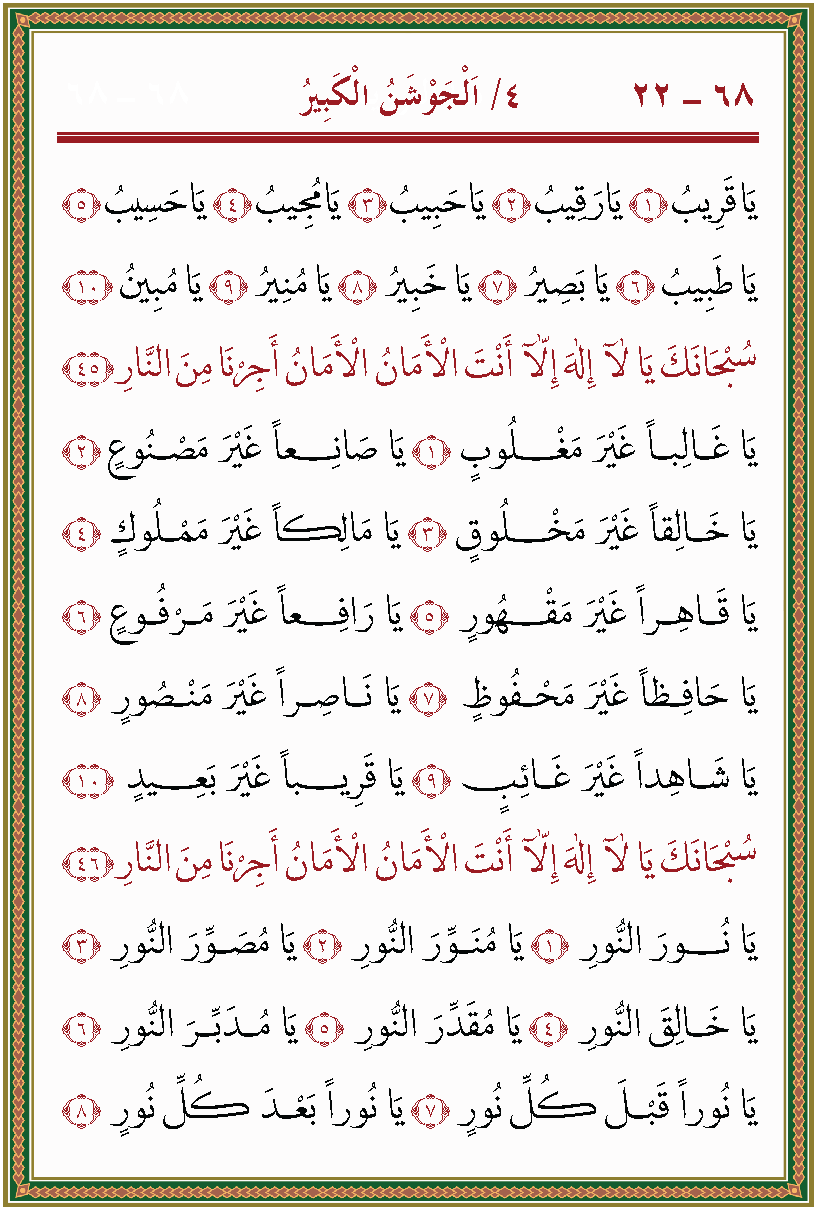 ٦٨ - ٢٢ ٤/ اَلْجَوْشَنُ الْكَبِيرُ ٦٨ - ٦٨
يَا قَرِيبُ ﴿١﴾ يَا رَقِيبُ ﴿٢﴾ يَا حَبِيبُ ﴿٣﴾ يَا مُجِيبُ ﴿٤﴾ يَا حَسِيبُ ﴿٥﴾
يَا طَبِيبُ ﴿٦﴾ يَا بَصِيرُ ﴿٧﴾ يَا خَبِيرُ ﴿٨﴾ يَا مُنِيرُ ﴿٩﴾ يَا مُبِينُ ﴿١٠﴾
سُبْحَانَكَ يَا لَٓا إِلٰهَ إِلَّٓا أَنْتَ الْأَمَانُ الْأَمَانُ أَجِرْنَا مِنَ النَّارِ ﴿٤٥﴾
يَا غَالِباً غَيْرَ مَغْلُوبٍ ﴿١﴾ يَا صَانِعاً غَيْرَ مَصْنُوعٍ ﴿٢﴾
يَا خَالِقاً غَيْرَ مَخْلُوقٍ ﴿٣﴾ يَا مَالِكاً غَيْرَ مَمْلُوكٍ ﴿٤﴾
يَا قَاهِراً غَيْرَ مَقْهُورٍ ﴿٥﴾ يَا رَافِعاً غَيْرَ مَرْفُوعٍ ﴿٦﴾
يَا حَافِظاً غَيْرَ مَحْفُوظٍ ﴿٧﴾ يَا نَاصِراً غَيْرَ مَنْصُورٍ ﴿٨﴾
يَا شَاهِداً غَيْرَ غَائِبٍ ﴿٩﴾ يَا قَرِيباً غَيْرَ بَعِيدٍ ﴿١٠﴾
سُبْحَانَكَ يَا لَٓا إِلٰهَ إِلَّٓا أَنْتَ الْأَمَانُ الْأَمَانُ أَجِرْنَا مِنَ النَّارِ ﴿٤٦﴾
يَا نُورَ النُّورِ ﴿١﴾ يَا مُنَوِّرَ النُّورِ ﴿٢﴾ يَا مُصَوِّرَ النُّورِ ﴿٣﴾
يَا خَالِقَ النُّورِ ﴿٤﴾ يَا مُقَدِّرَ النُّورِ ﴿٥﴾ يَا مُدَبِّرَ النُّورِ ﴿٦﴾
يَا نُوراً قَبْلَ كُلِّ نُورٍ ﴿٧﴾ يَا نُوراً بَعْدَ كُلِّ نُورٍ ﴿٨﴾